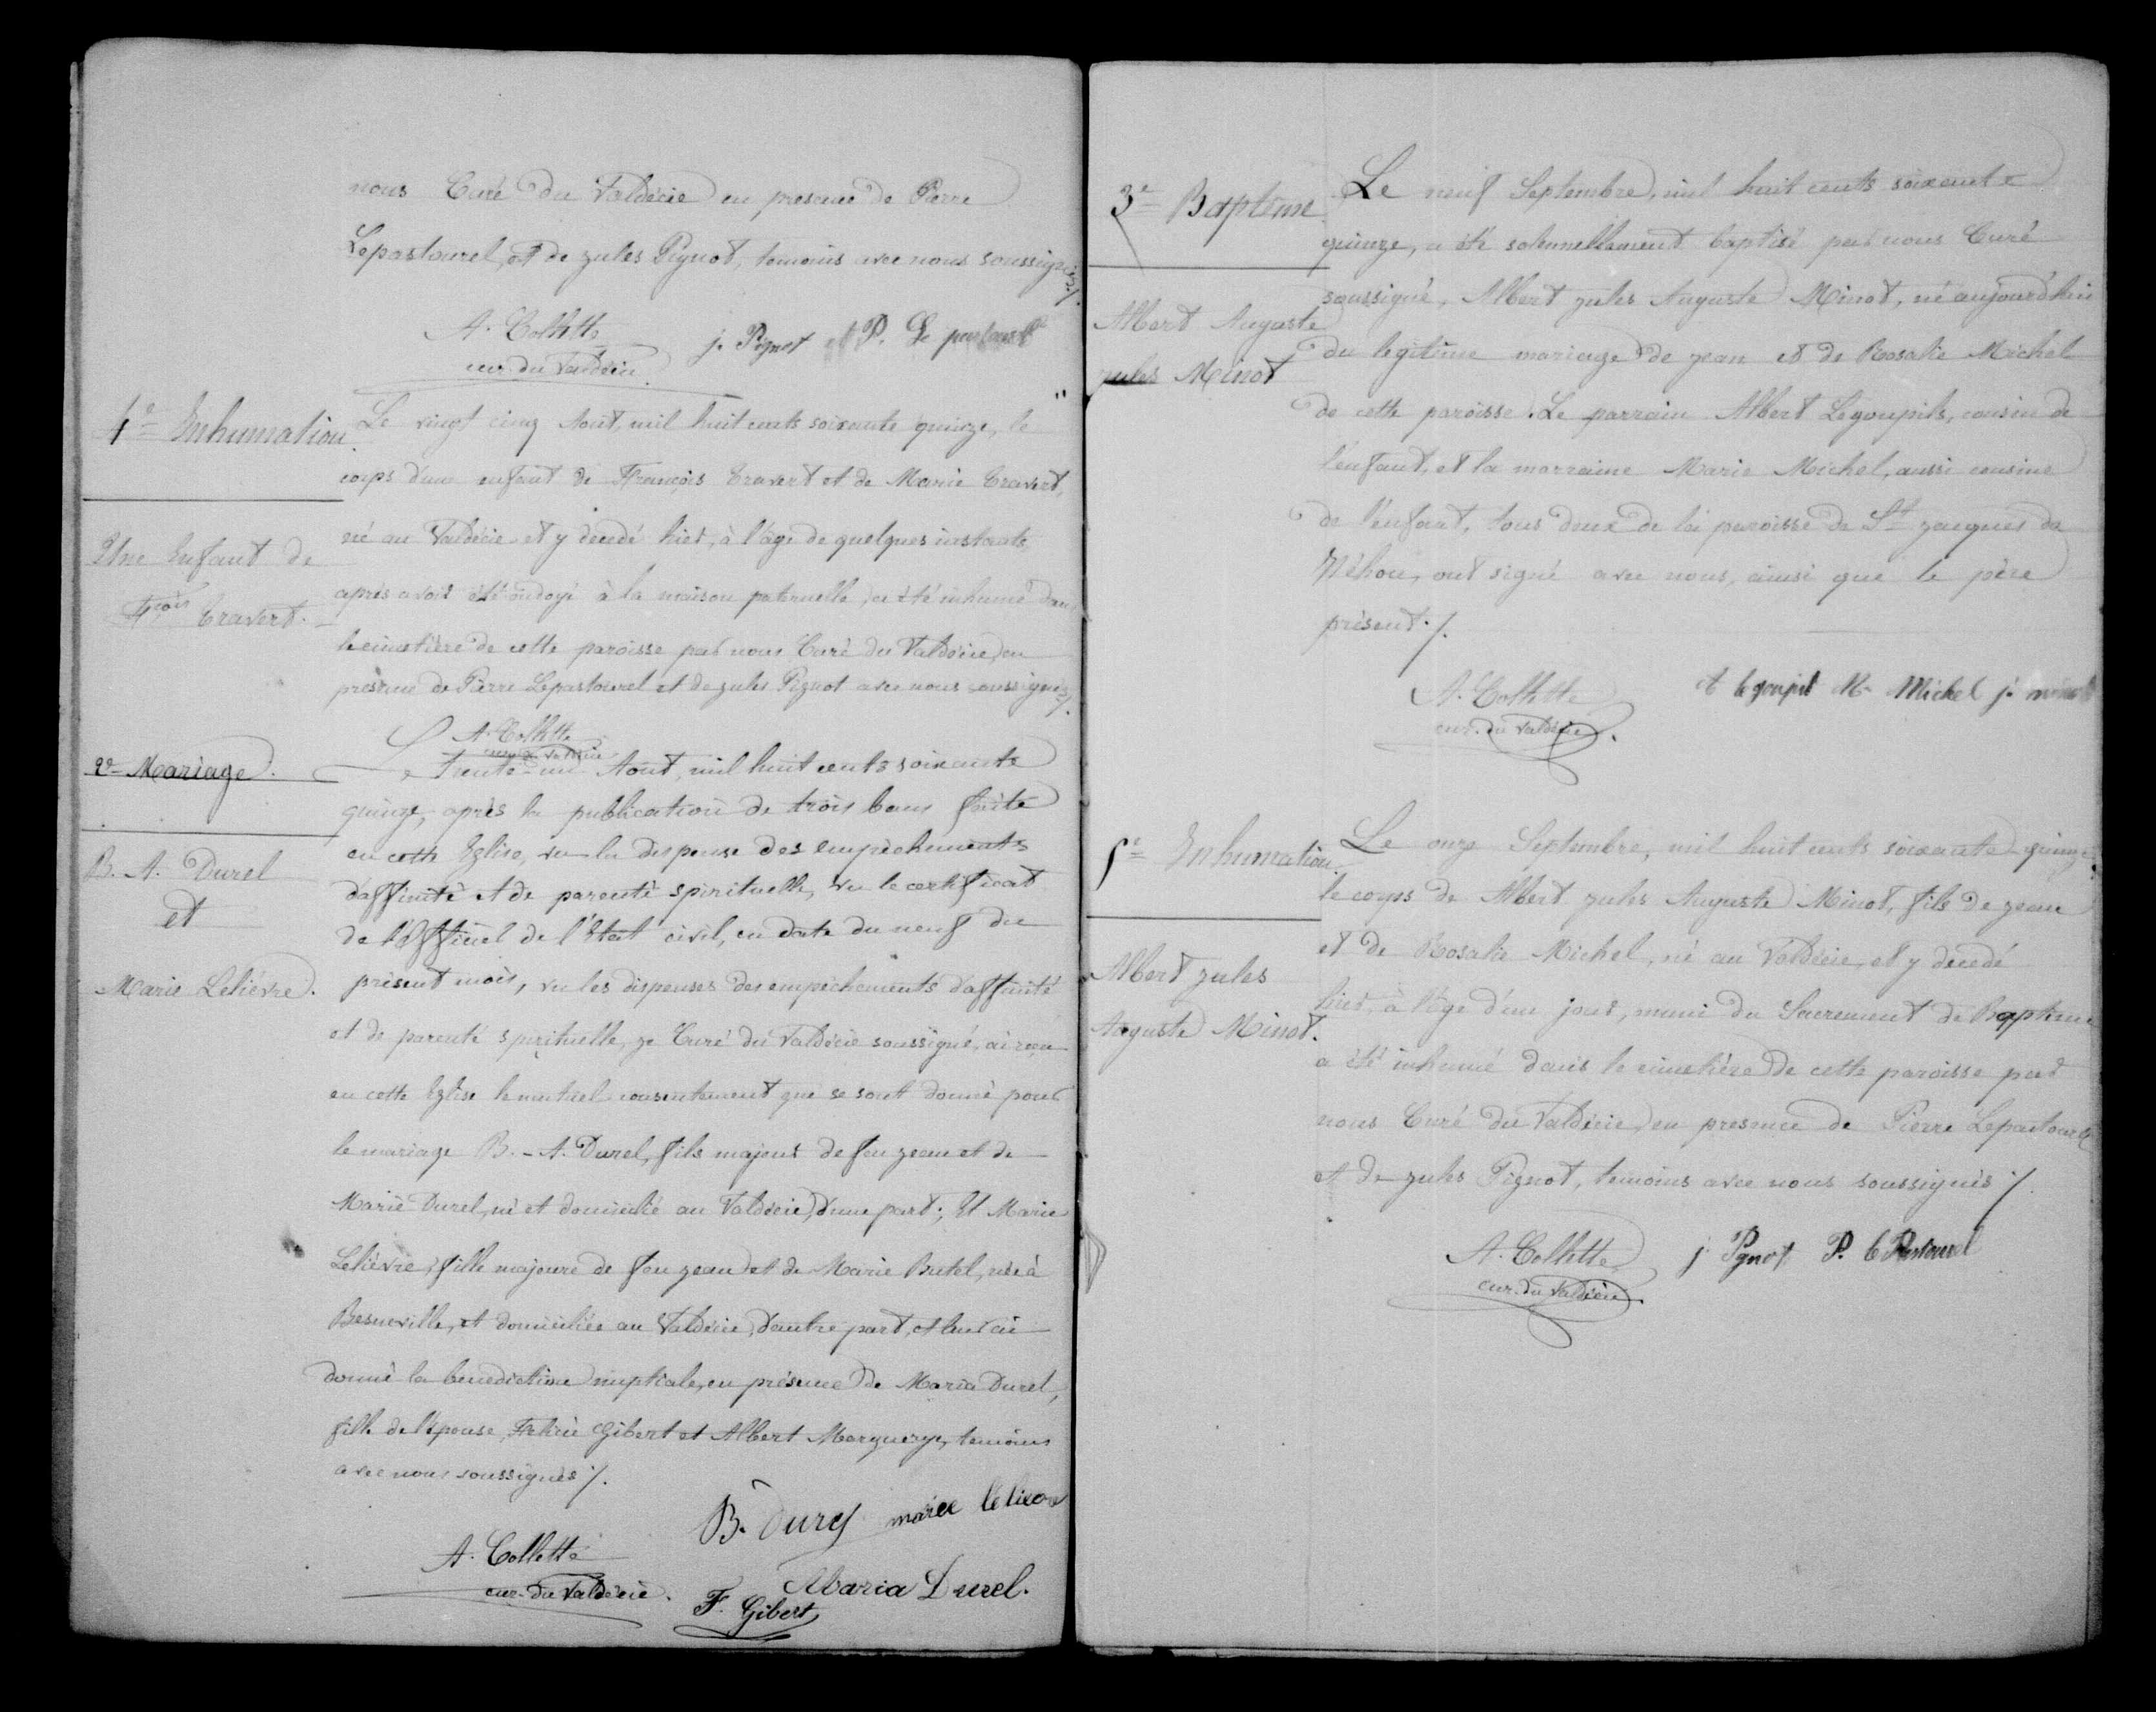 nous Curé du Valdécie en presence de Pierre
Lepastourel, et de jules Pignot, temoins avec nous soussignés ./.
A. Collette
cur. du Valdécie
j. Pignot et P. Le pastourel
4e Inhumation
Le vingt cinq Aout, mil huit cents soixante quinze, le
corps d'un enfant de François Travert et de Marie Travert,
né au Valdécie et y decedé hier, à l'âge de quelques instants,
après avoir été ondoyé à la maison paternelle, a été inhumé dans
le cimetière de cette paroisse par nous Curé du Valdécie, en
presence de Pierre Lepastourel et de jules Pignot avec nous soussignés ./.
Une Enfant de
Fçois Travert.
A. Collette
cur. du Valdécie
2e Mariage.
Le Trente-un Aout, mil huit cents soixante
quinze, après la publication de trois bans faite
en cette Eglise, vu la dispense des empêchements
d'affinité et de parenté spirituelle, vu le certificat
de l'Officiel de l'Etat civil, en date du neuf du
présent mois, vu les dispenses des empêchements d'affinité
et de parenté spirituelle, je Curé du Valdécie soussigné, ai reçu
en cette Eglise le mutuel consentement que se sont donné pour
le mariage B. - A. Durel, fils majeur de feu jean et de
Marie Durel, né et domicilié au Valdécie, d'une part; Et Marie
Lelièvre, fille majeure de feu jean et de Marie Butel, née à
Besneville, et domiciliée au Valdécie, d'autre part, et leur ai
donné la benediction nuptiale, en présence de Maria Durel,
fille de l'épouse, Felicie Gibert et Albert Marguerye, temoins
avec nous soussignés ./.
B. A. Durel
et
Marie Lelièvre.
A. Collette
cur. du Valdécie.
B. Durel marie lelievre
Maria Durel.
F. Gibert
3e Baptême
Le neuf Septembre, mil huit cents soixante
quinze, a été solennellement baptisé par nous Curé
soussigné, Albert jules Auguste Minot, né aujourd'hui
du legitime mariage de jean et de Rosalie Michel
de cette paroisse. Le parrain Albert Legoupils, cousin de
l'enfant, et la marraine Marie Michel, aussi cousine
de l'enfant, tous deux de la paroisse de St jacques de
Néhou, ont signé avec nous, ainsi que le père
présent ./.
Albert Auguste
jules Minot
A. Collette
cur. du Valdécie.
A legoupil M. Michel j. minot
5e Inhumation.
Le onze Septembre, mil huit cents soixante-quinze,
le corps de Albert jules Auguste Minot, fils de jean
et de Rosalie Michel, né au Valdécie, et y decedé
hier, à l'âge d'un jour, muni du Sacrement de Baptême
a été inhumé dans le cimetière de cette paroisse par
nous Curé du Valdécie, en presence de Pierre Lepastourel
et de jules Pignot, temoins avec nous soussignés ./.
Albert jules
Auguste Minot.
A. Collette
cur. du Valdécie
j. Pignot P. le Pastourel